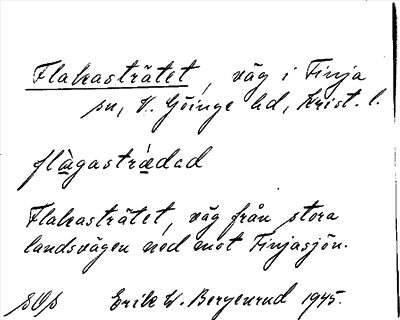 Flakasträtet, väg i Finja
sn, V. Göinge hd, Krist. l.
flàgastrǽdad
Flakasträtet, väg från stora
landsvägen ned mot Finjasjön.
Erik W. Bergenrud 1945.